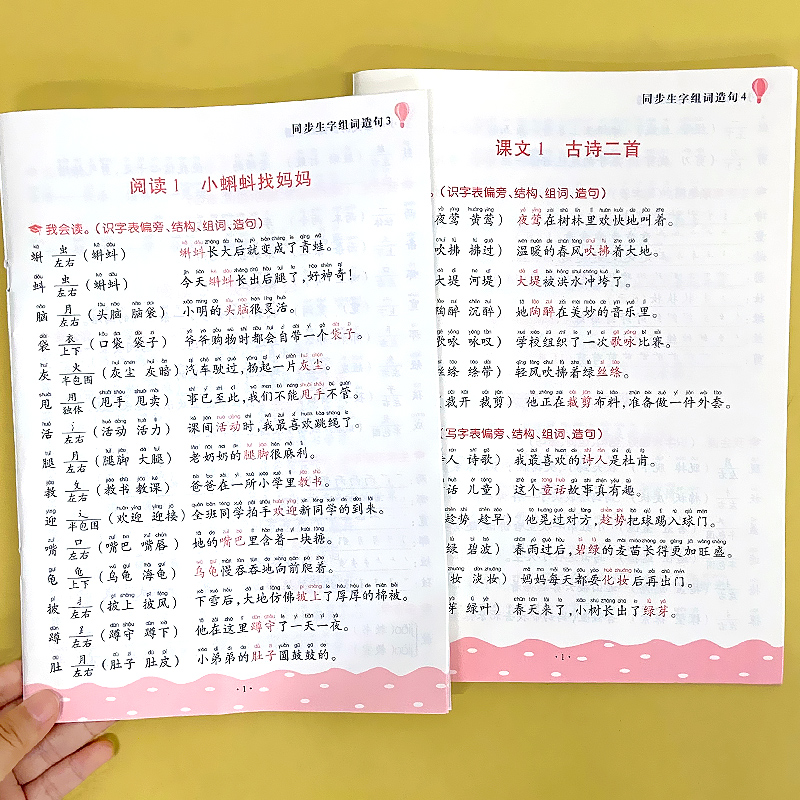 同步生字组词造句3
阅读1 小蝌蚪找妈妈
我会读。(识字表偏旁、结构、组词、造句)
蝌 虫 左右 (蝌蚪) 蝌蚪长大后就变成了青蛙。
蚪 虫 左右 (蝌蚪) 今天蝌蚪长出后腿了,好神奇!
脑 月 左右 (头脑 脑袋) 小明的头脑很灵活。
袋 衣 上下 (口袋 袋子) 爷爷购物时都会自带一个袋子。
灰 火 半包围 (灰尘 灰暗) 汽车驶过,扬起一片灰尘。
甩 用 独体 (甩手 甩卖) 事已至此,我们不能甩手不管。
活 氵 左右 (活动 活力) 课间活动时,我最喜欢跳绳了。
腿 月 左右 (腿脚 大腿) 老奶奶的腿脚很麻利。
教 攵 左右 (教书 教课) 爸爸在一所小学里教书。
迎 辶 半包围 (欢迎 迎接) 全班同学拍手欢迎新同学的到来。
嘴 口 左右 (嘴巴 嘴唇) 她的嘴巴里含着一块糖。
龟 龟 上下 (乌龟 海龟) 乌龟慢吞吞地向前爬着。
披 扌 左右 (披上 披风) 下雪后,大地仿佛披上了厚厚的棉被。
蹲 𧾷 左右 (蹲守 蹲下) 他在这里蹲守了一天一夜。
肚 月 左右 (肚子 肚皮) 小弟弟的肚子圆鼓鼓的。
·1·
同步生字组词造句4
课文1 古诗二首
。(识字表偏旁、结构、组词、造句)
夜莺 黄莺) 夜莺在树林里欢快地叫着。
吹拂 拂过) 温暖的春风吹拂着大地。
大堤 河堤) 大堤被洪水冲垮了。
陶醉 沉醉) 她陶醉在美妙的音乐里。
歌咏 咏叹) 学校组织了一次歌咏比赛。
丝绦 绦带) 轻风吹拂着绿丝绦。
裁开 裁剪) 他正在裁剪布料,准备做一件外套。
(写字表偏旁、结构、组词、造句)
人 诗歌) 我最喜欢的诗人是杜甫。
话 儿童) 这个童话故事真有趣。
趁势 趁早) 他晃过对方,趁势把球踢入球门。
绿 碧波) 春雨过后,碧绿的麦苗长得更加旺盛。
妆 淡妆) 妈妈每天都要化妆后再出门。
芽 绿叶) 春天来了,小树长出了绿芽。
·1·